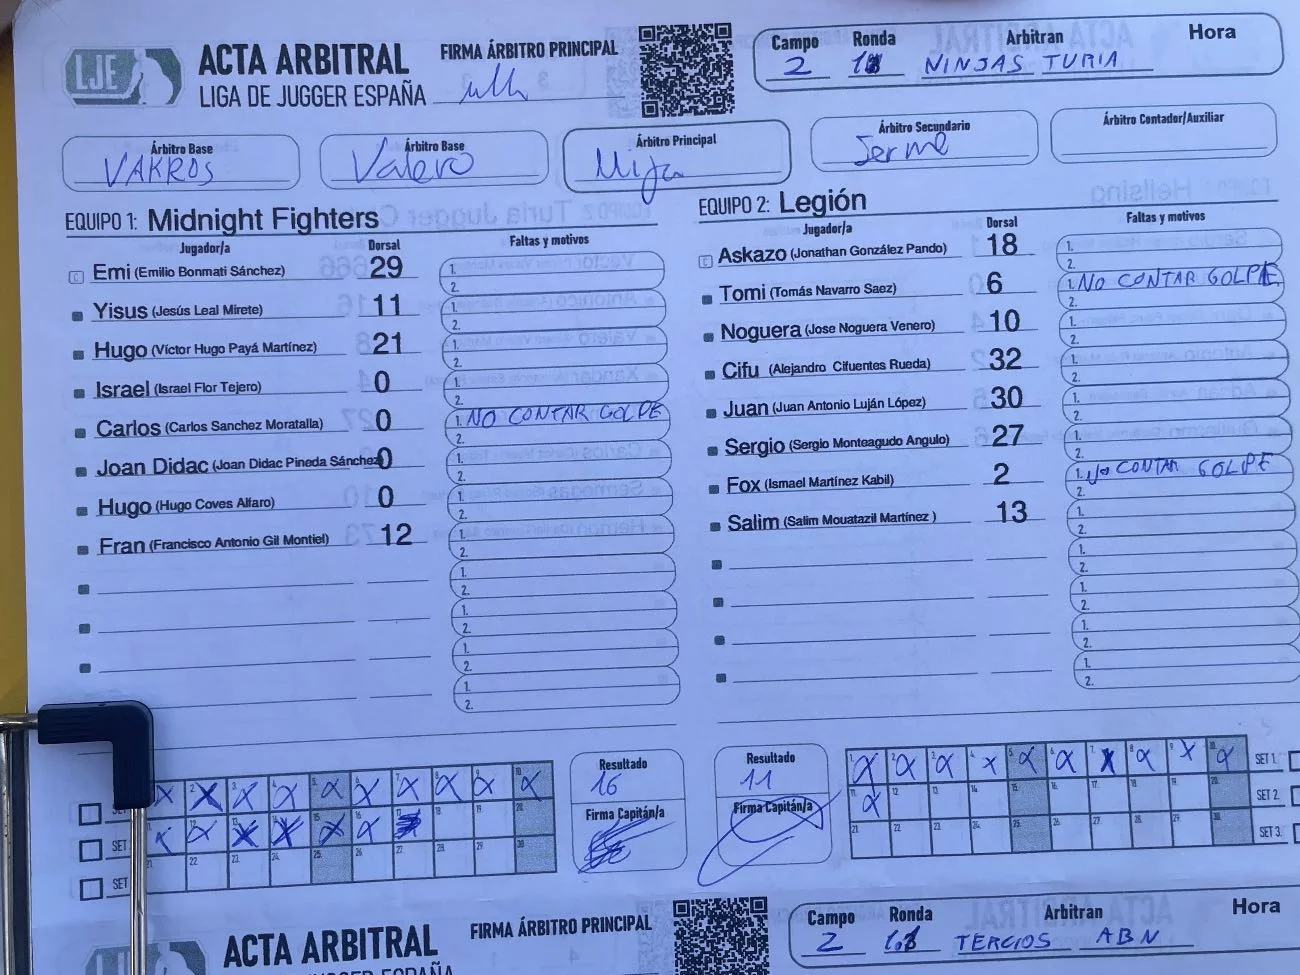 LJE
ACTA ARBITRAL
LIGA DE JUGGER ESPAÑA
FIRMA ÁRBITRO PRINCIPAL
Campo Ronda Arbitran Hora
2 NINJAS TURIA
Árbitro Base
VAKROS
Árbitro Base
Valero
Árbitro Principal
Árbitro Secundario
Árbitro Contador/Auxiliar
EQUIPO 1: Midnight Fighters
Jugador/a Dorsal Faltas y motivos
C Emi (Emilio Bonmati Sánchez) 29 1.
2.
Yisus (Jesús Leal Mirete) 11 1.
2.
Hugo (Víctor Hugo Payá Martínez) 21 1.
2.
Israel (Israel Flor Tejero) 0 1.
2.
Carlos (Carlos Sanchez Moratalla) 0 1. NO CONTAR GOLPE
2.
Joan Didac (Joan Didac Pineda Sánchez) 0 1.
2.
Hugo (Hugo Coves Alfaro) 0 1.
2.
Fran (Francisco Antonio Gil Montiel) 12 1.
2.
1.
2.
1.
2.
1.
2.
1.
2.
EQUIPO 2: Legión
Jugador/a Dorsal Faltas y motivos
C Askazo (Jonathan González Pando) 18 1.
2.
Tomi (Tomás Navarro Saez) 6 1. NO CONTAR GOLPE
2.
Noguera (Jose Noguera Venero) 10 1.
2.
Cifu (Alejandro Cifuentes Rueda) 32 1.
2.
Juan (Juan Antonio Luján López) 30 1.
2.
Sergio (Sergio Monteagudo Angulo) 27 1.
2.
Fox (Ismael Martínez Kabil) 2 1. No CONTAR GOLPE
2.
Salim (Salim Mouatazil Martínez ) 13 1.
2.
1.
2.
1.
2.
1.
2.
1.
2.
Resultado
16
Firma Capitán/a
Resultado
11
Firma Capitán/a
SET 1.
SET 2.
SET 3.
SET
SET
LJE
ACTA ARBITRAL
FIRMA ÁRBITRO PRINCIPAL
Campo Ronda Arbitran Hora
2 TERCIOS ABN